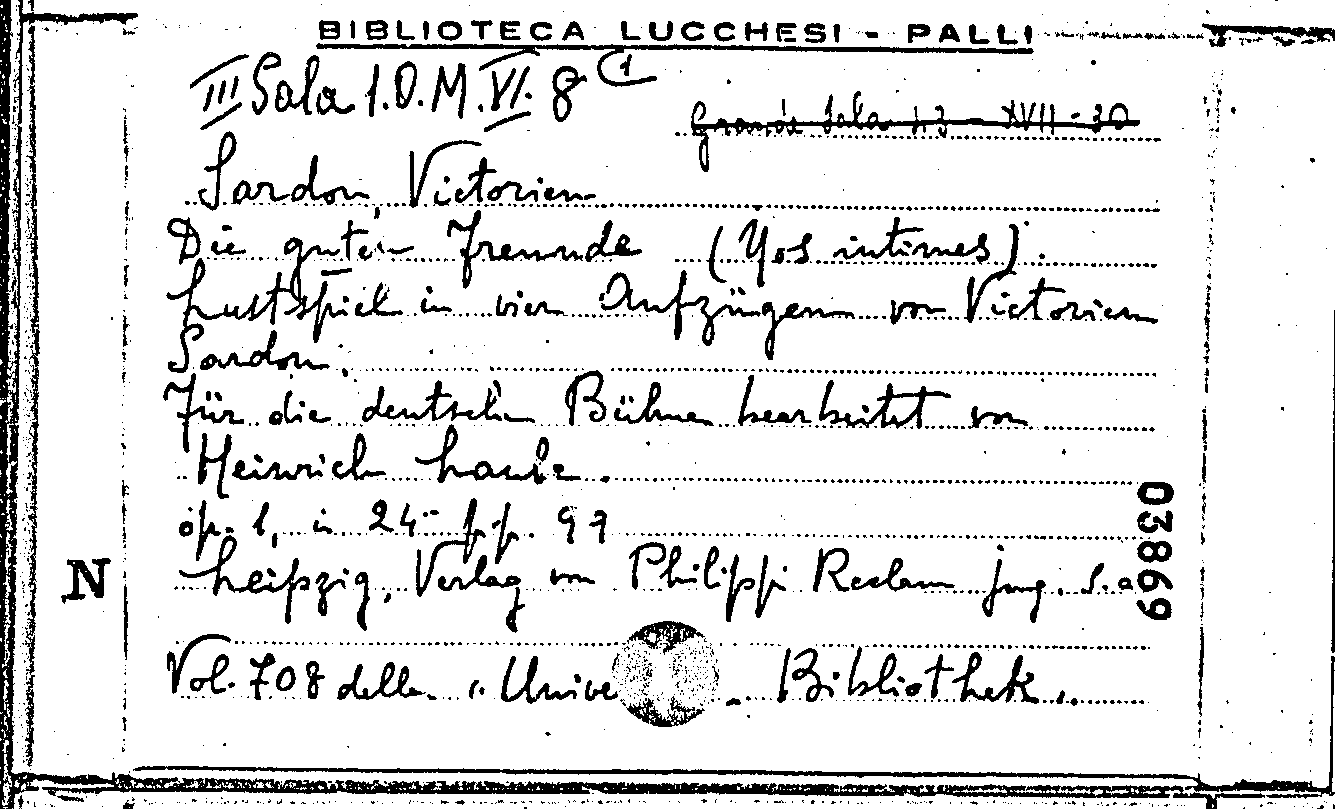 BIBLIOTECA LUCCHESI - PALLI
III Sala 1.O.M.VI. 8 (1
Grande Sala 43 - XVII - 30
Sardou, Victorien
Die guten Freunde (Nos intimes).
Lustspiel in vier Aufzügen von Victorien
Sardou.
Für die deutsche Bühne bearbeitet von
Heinrich Laube.
op. 1, in 24- pp. 97
Leipzig, Verlag von Philipp Reclam jung. S.a
03869
N
Vol. 708 della " Unive - Bibliothek "